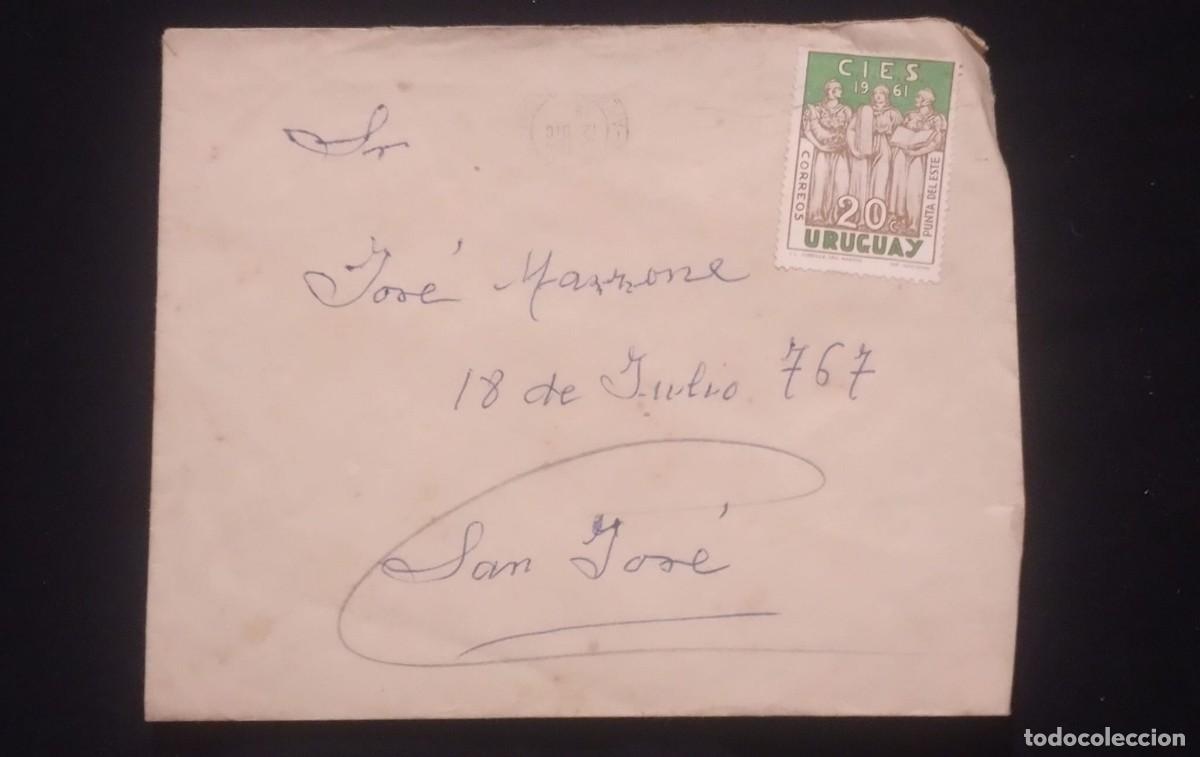 Sr
José Marrone
18 de Julio 767
San José
CIES
1961
CORREOS
PUNTA DEL ESTE
20c
URUGUAY
todocoleccion